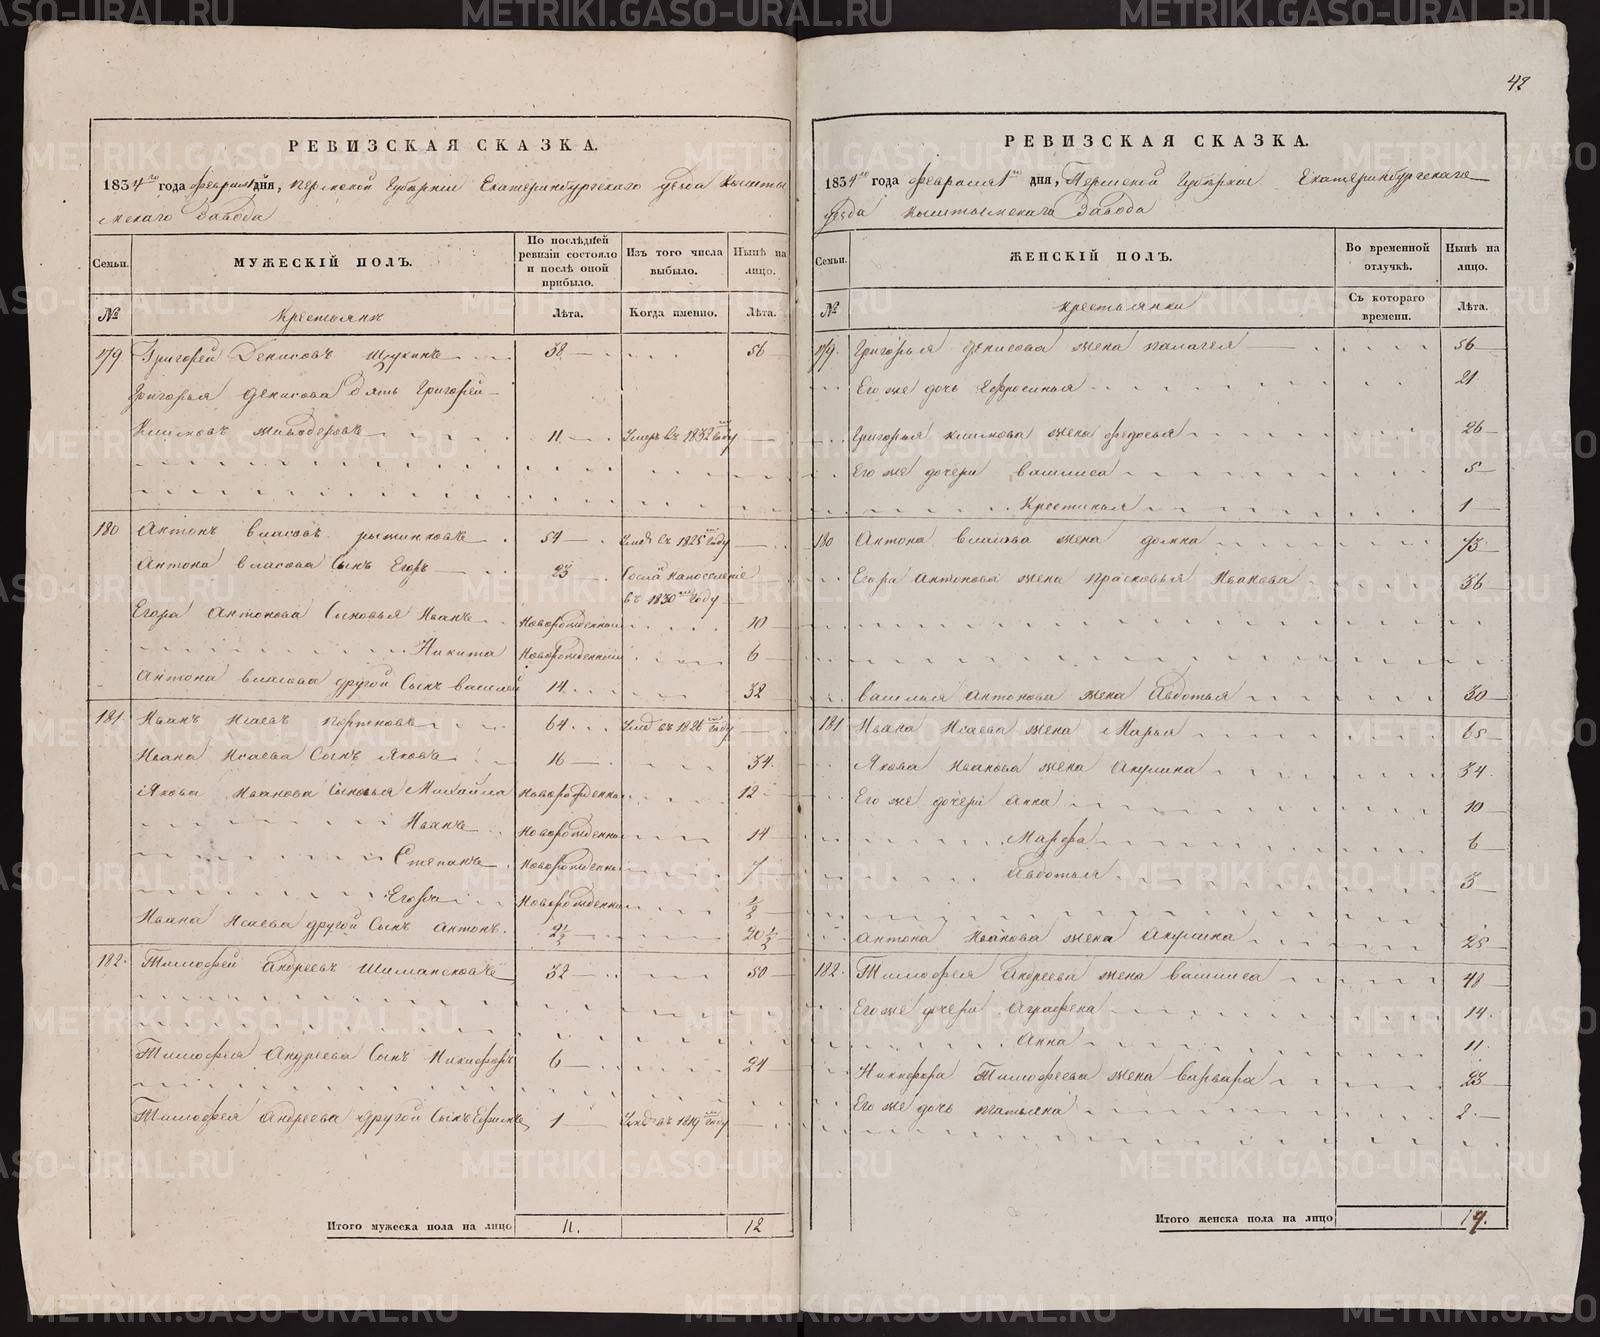 42
РЕВИЗСКАЯ СКАЗКА.
1834го года февраля 1 дня, Пермской Губѣрніи Екатеринбургскаго уезда Кышты
мскаго Завода
Семьи.
МУЖЕСКІЙ ПОЛЪ.
По послѣдней ревизіи состояло и послѣ оной прибыло.
Изъ того числа выбыло.
Нынѣ на лицо.
№
Крестьянъ
Лѣта.
Когда именно.
Лѣта.
179 Григорей Денисовъ Щукинъ 38 56
Григорья Денисова зять Григорей
Климовъ Живодеровъ 11 Умеръ въ 1832м году
180 Антонъ Власовъ 54 Умеръ въ 1825м году
Антона Власова Сынъ Егоръ 23 Сосланъ на поселеніе
въ 1830м году
Егора Антонова Сыновья Иванъ Новорожденныи 10
Никита Новорожденныи 6
Антона Власова другой Сынъ Василей 14 32
181 Иванъ Исаевъ 64 Умеръ въ 1826м году
Ивана Исаева Сынъ Яковъ 16 34
Якова Иванова Сыновья Михайла Новорожденныи 12
Иванъ Новорожденныи 14
Степанъ Новорожденныи 7
Егоръ Новорожденныи ½
Ивана Исаева другой Сынъ Антонъ 2½ 20½
182 Тимофей Андреевъ 32 50
Тимофея Андреева Сынъ Никифоръ 6 24
Тимофея Андреева другой Сынъ Ефимъ 1 Умеръ въ 1819м году
Итого мужеска пола на лицо 11. 12
РЕВИЗСКАЯ СКАЗКА.
1834го года февраля 1го дня, Пермской Губѣрніи Екатеринбургскаго
уезда Кыштымскаго Завода
Семьи.
ЖЕНСКІЙ ПОЛЪ.
Во временной отлучкѣ.
Нынѣ на лицо.
№
Крестьянки
Съ котораго времени.
Лѣта.
179. Григорья Денисова жена Палагея 56
Его же дочь Ефросинья 21
Григорья Климова жена Федосья 26
Его же дочери Василиса 5
Крестинья 1
180 Антона Власова жена Домна 73
Егора Антонова жена Прасковья Иванова 36
Василья Антонова жена Авдотья 30
181 Ивана Исаева жена Марья 65
Якова Иванова жена Акулина 34
Его же дочери Анна 10
Марфа 6
Авдотья 3
Антона Иванова жена Акулина 25
182. Тимофея Андреева жена Василиса 48
Его же дочери Аграфена 14
Анна 11
Никифора Тимофеева жена Варвара 23
Его же дочь Татьяна 2
Итого женска пола на лицо 19.
METRIKI.GASO-URAL.RU